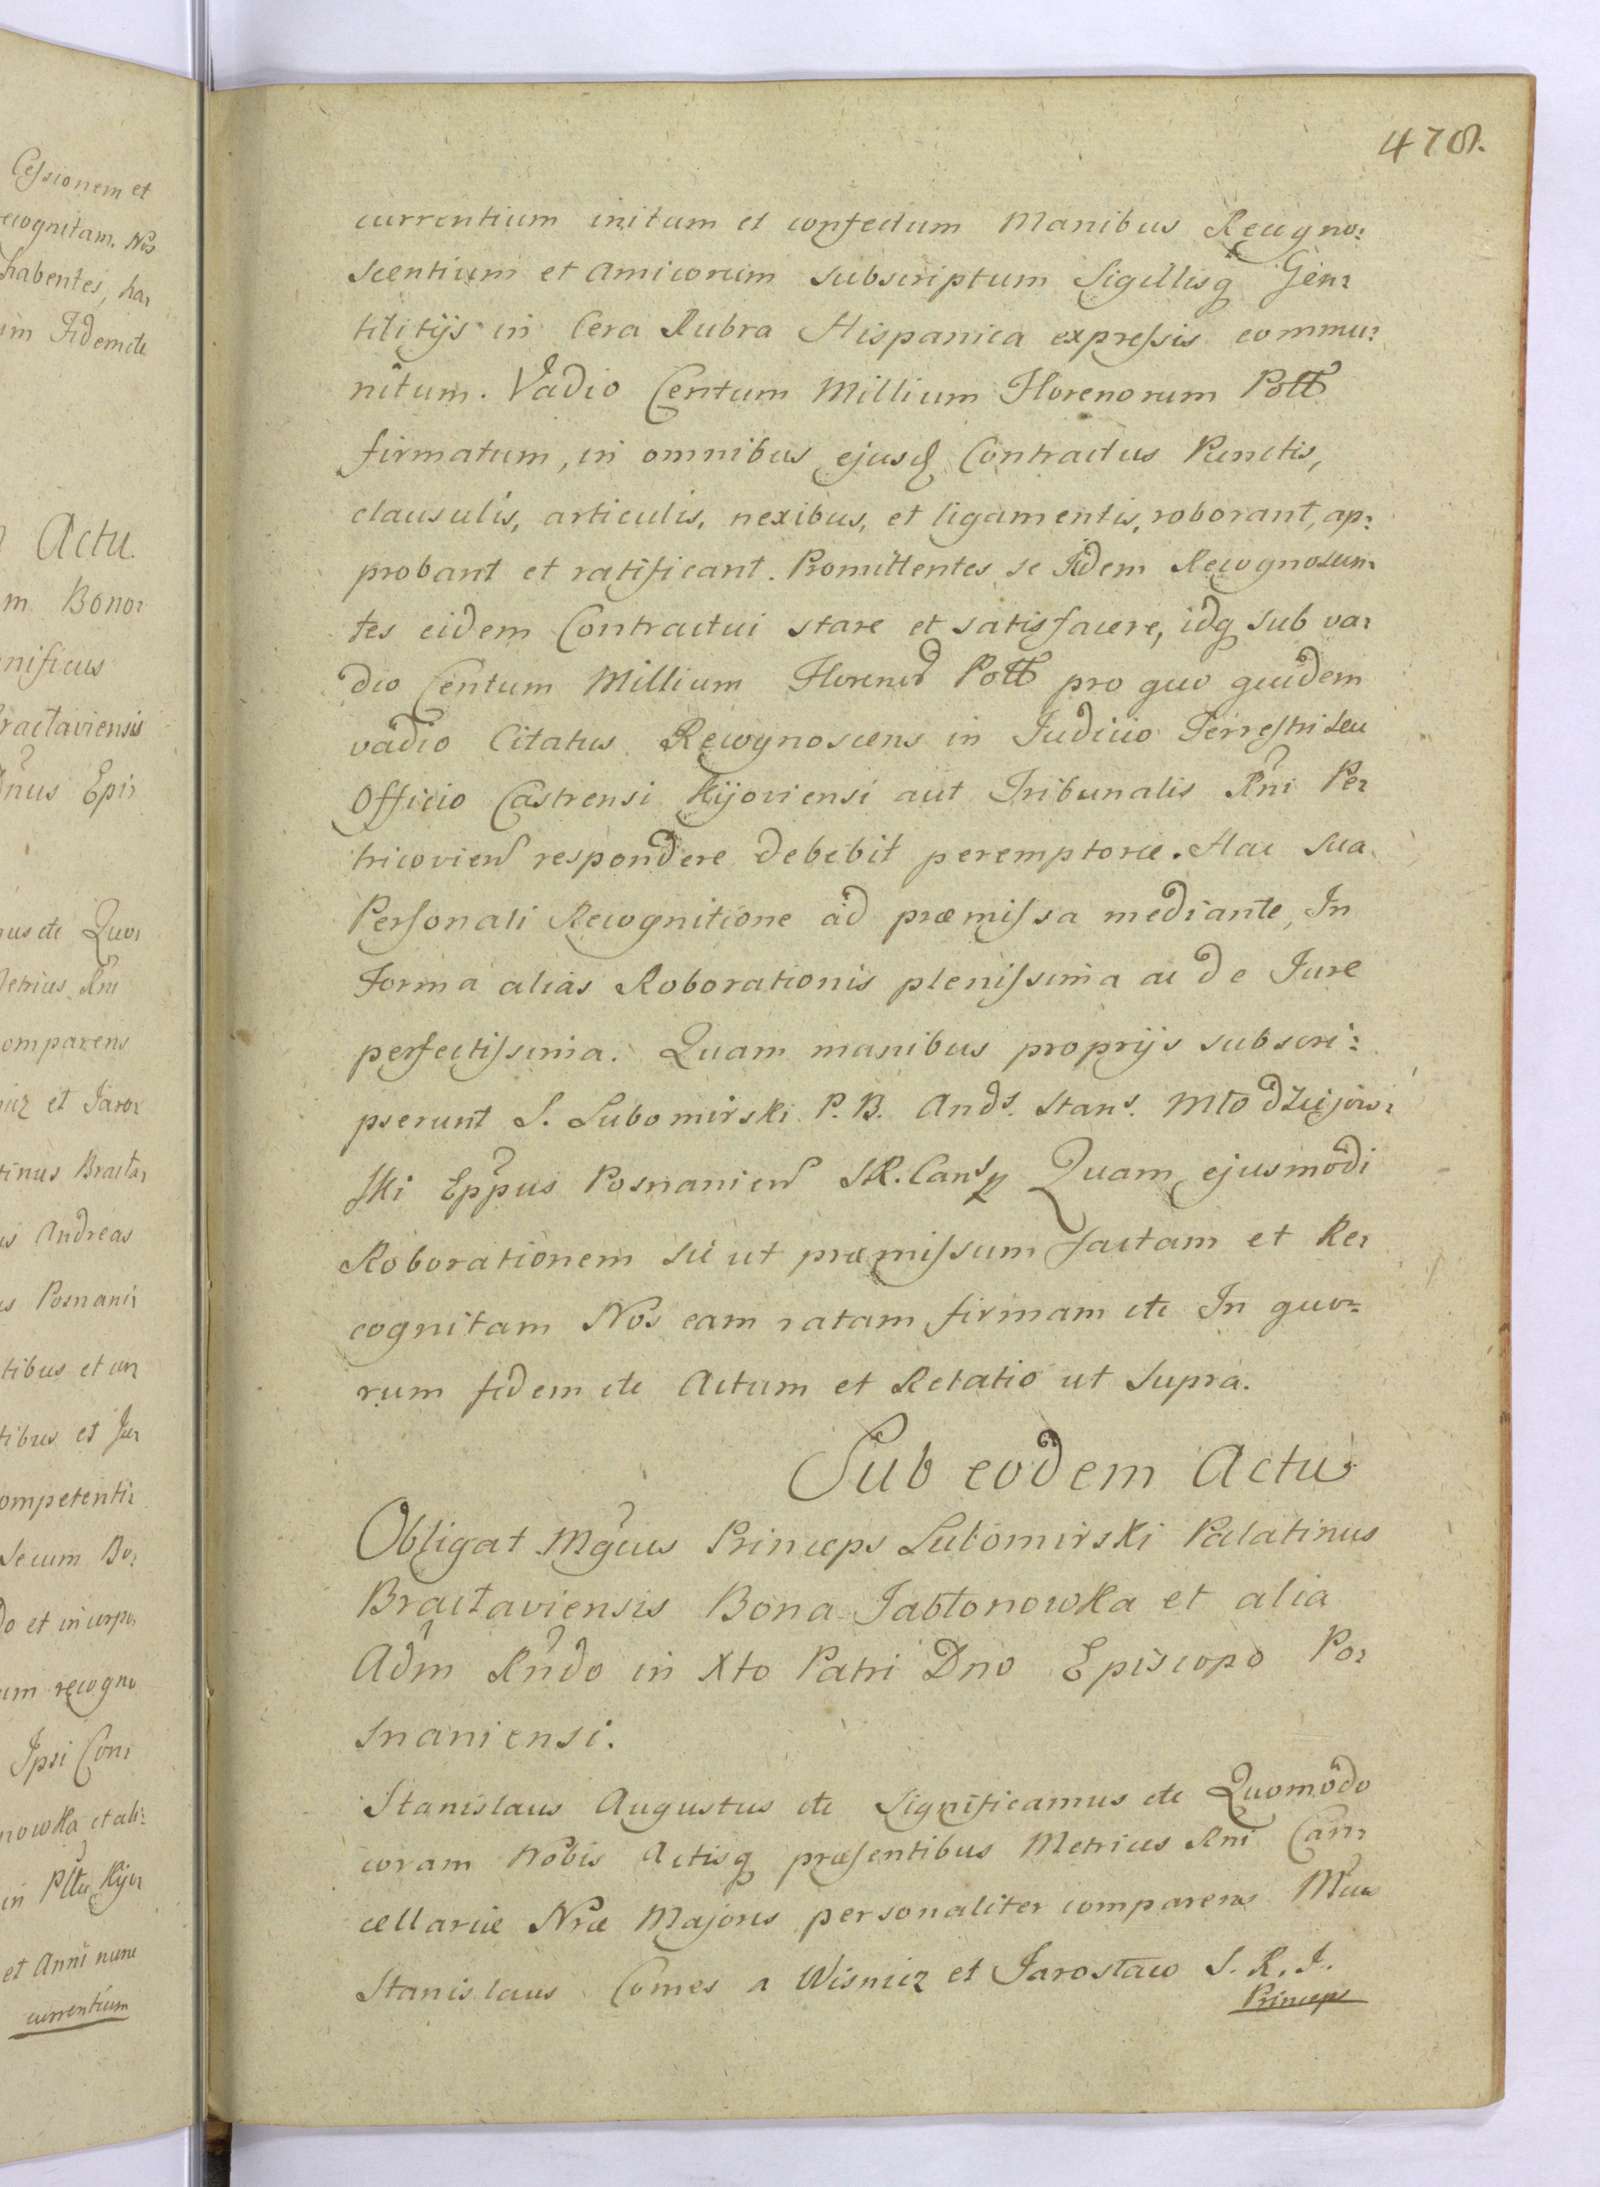 Cessionem et
recognitam. Nos
habentes, ha:
um Fidem etc
Actu
m Bono:
nificus
ractaviensis
Dnus Epi:
nus etc Quo:
Metrices Rni
omparens
nicz et Jaro:
tinus Bracta:
is Andreas
us Posnani:
tibus et con:
tibus et Ju:
ompetenti:
Secum Bo:
do et incorpo:
um recogno
Ipsi Con:
nowka et ali:
in Pltu Kijo:
et Anni nunc
currentium
478.
currentium initum et confectum Manibus Recogno:
scentium et Amicorum subscriptum Sigillisq Gen:
tilitijs in Cera Rubra Hispanica expressis commu:
nitum. Vadio Centum Millium Florenorum Poll
firmatum, in omnibus ejusd Contractus Punctis,
clausulis, articulis, nexibus, et ligamentis, roborant, ap:
probant et ratificant. Promittentes se Iidem Recognoscen:
tes eidem Contractui stare et satisfacere, idq sub va:
dio Centum Millium Floreno Poll pro quo quidem
vadio Citatus Recognoscens in Judicio Terrestri seu
Officio Castrensi Kijoviensi aut Tribunalis Rni Pe:
tricovien respondere debebit peremptorie. Hac sua
Personali Recognitione ad præmissa mediante, In
Forma alias Roborationis plenissima ac de Jure
perfectissima. Quam manibus proprijs subscri:
pserunt S. Lubomirski P. B. Ands. Stans. Młodziejow:
ski Eppus Posnanien S.R. Cans Quam ejusmodi
Roborationem sic ut præmissum factam et Re:
cognitam Nos eam ratam firmam etc In quo:
rum fidem etc Actum et Relatio ut Supra.
Sub eodem Actu
Obligat Mgcus Princeps Lubomirski Palatinus
Bractaviensis Bona Jabłonowka et alia
Adm Rndo in Xto Patri Dno Episcopo Po:
snaniensi.
Stanislaus Augustus etc Significamus etc Quomodo
coram Nobis Actisq præsentibus Metrices Rni Can:
cellariæ Nræ Majoris personaliter comparens Mcus
Stanislaus Comes a Wisnicz et Jarosław S. R. I.
Princeps